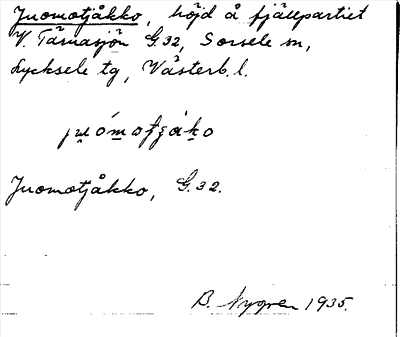 Juomotjåkko, höjd å fjällpartiet
V. Tärnasjön G.32, Sorsele sn,
Lycksele tg, Västerb. l.
Juomotjåkko, G.32.
B. Nygren 1935.